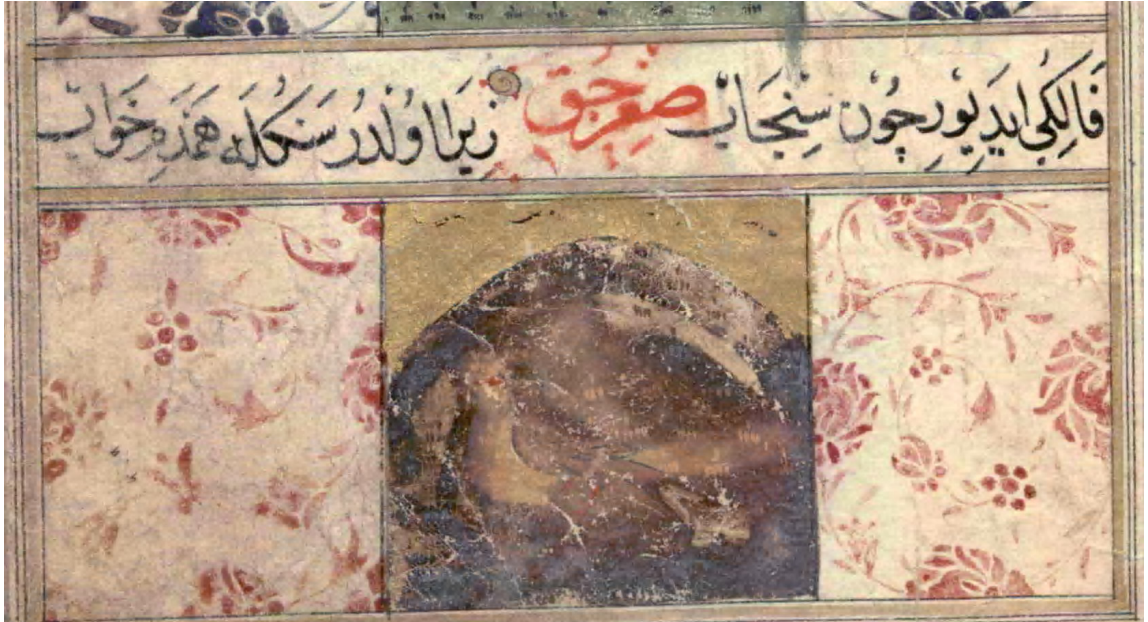 فَالِكِى ايدَيِيورْ چُونْ سِنْجَابْ صغرجق زِيَرا اولدُرْ سَنكله هَمَدَمِ خَوابْ